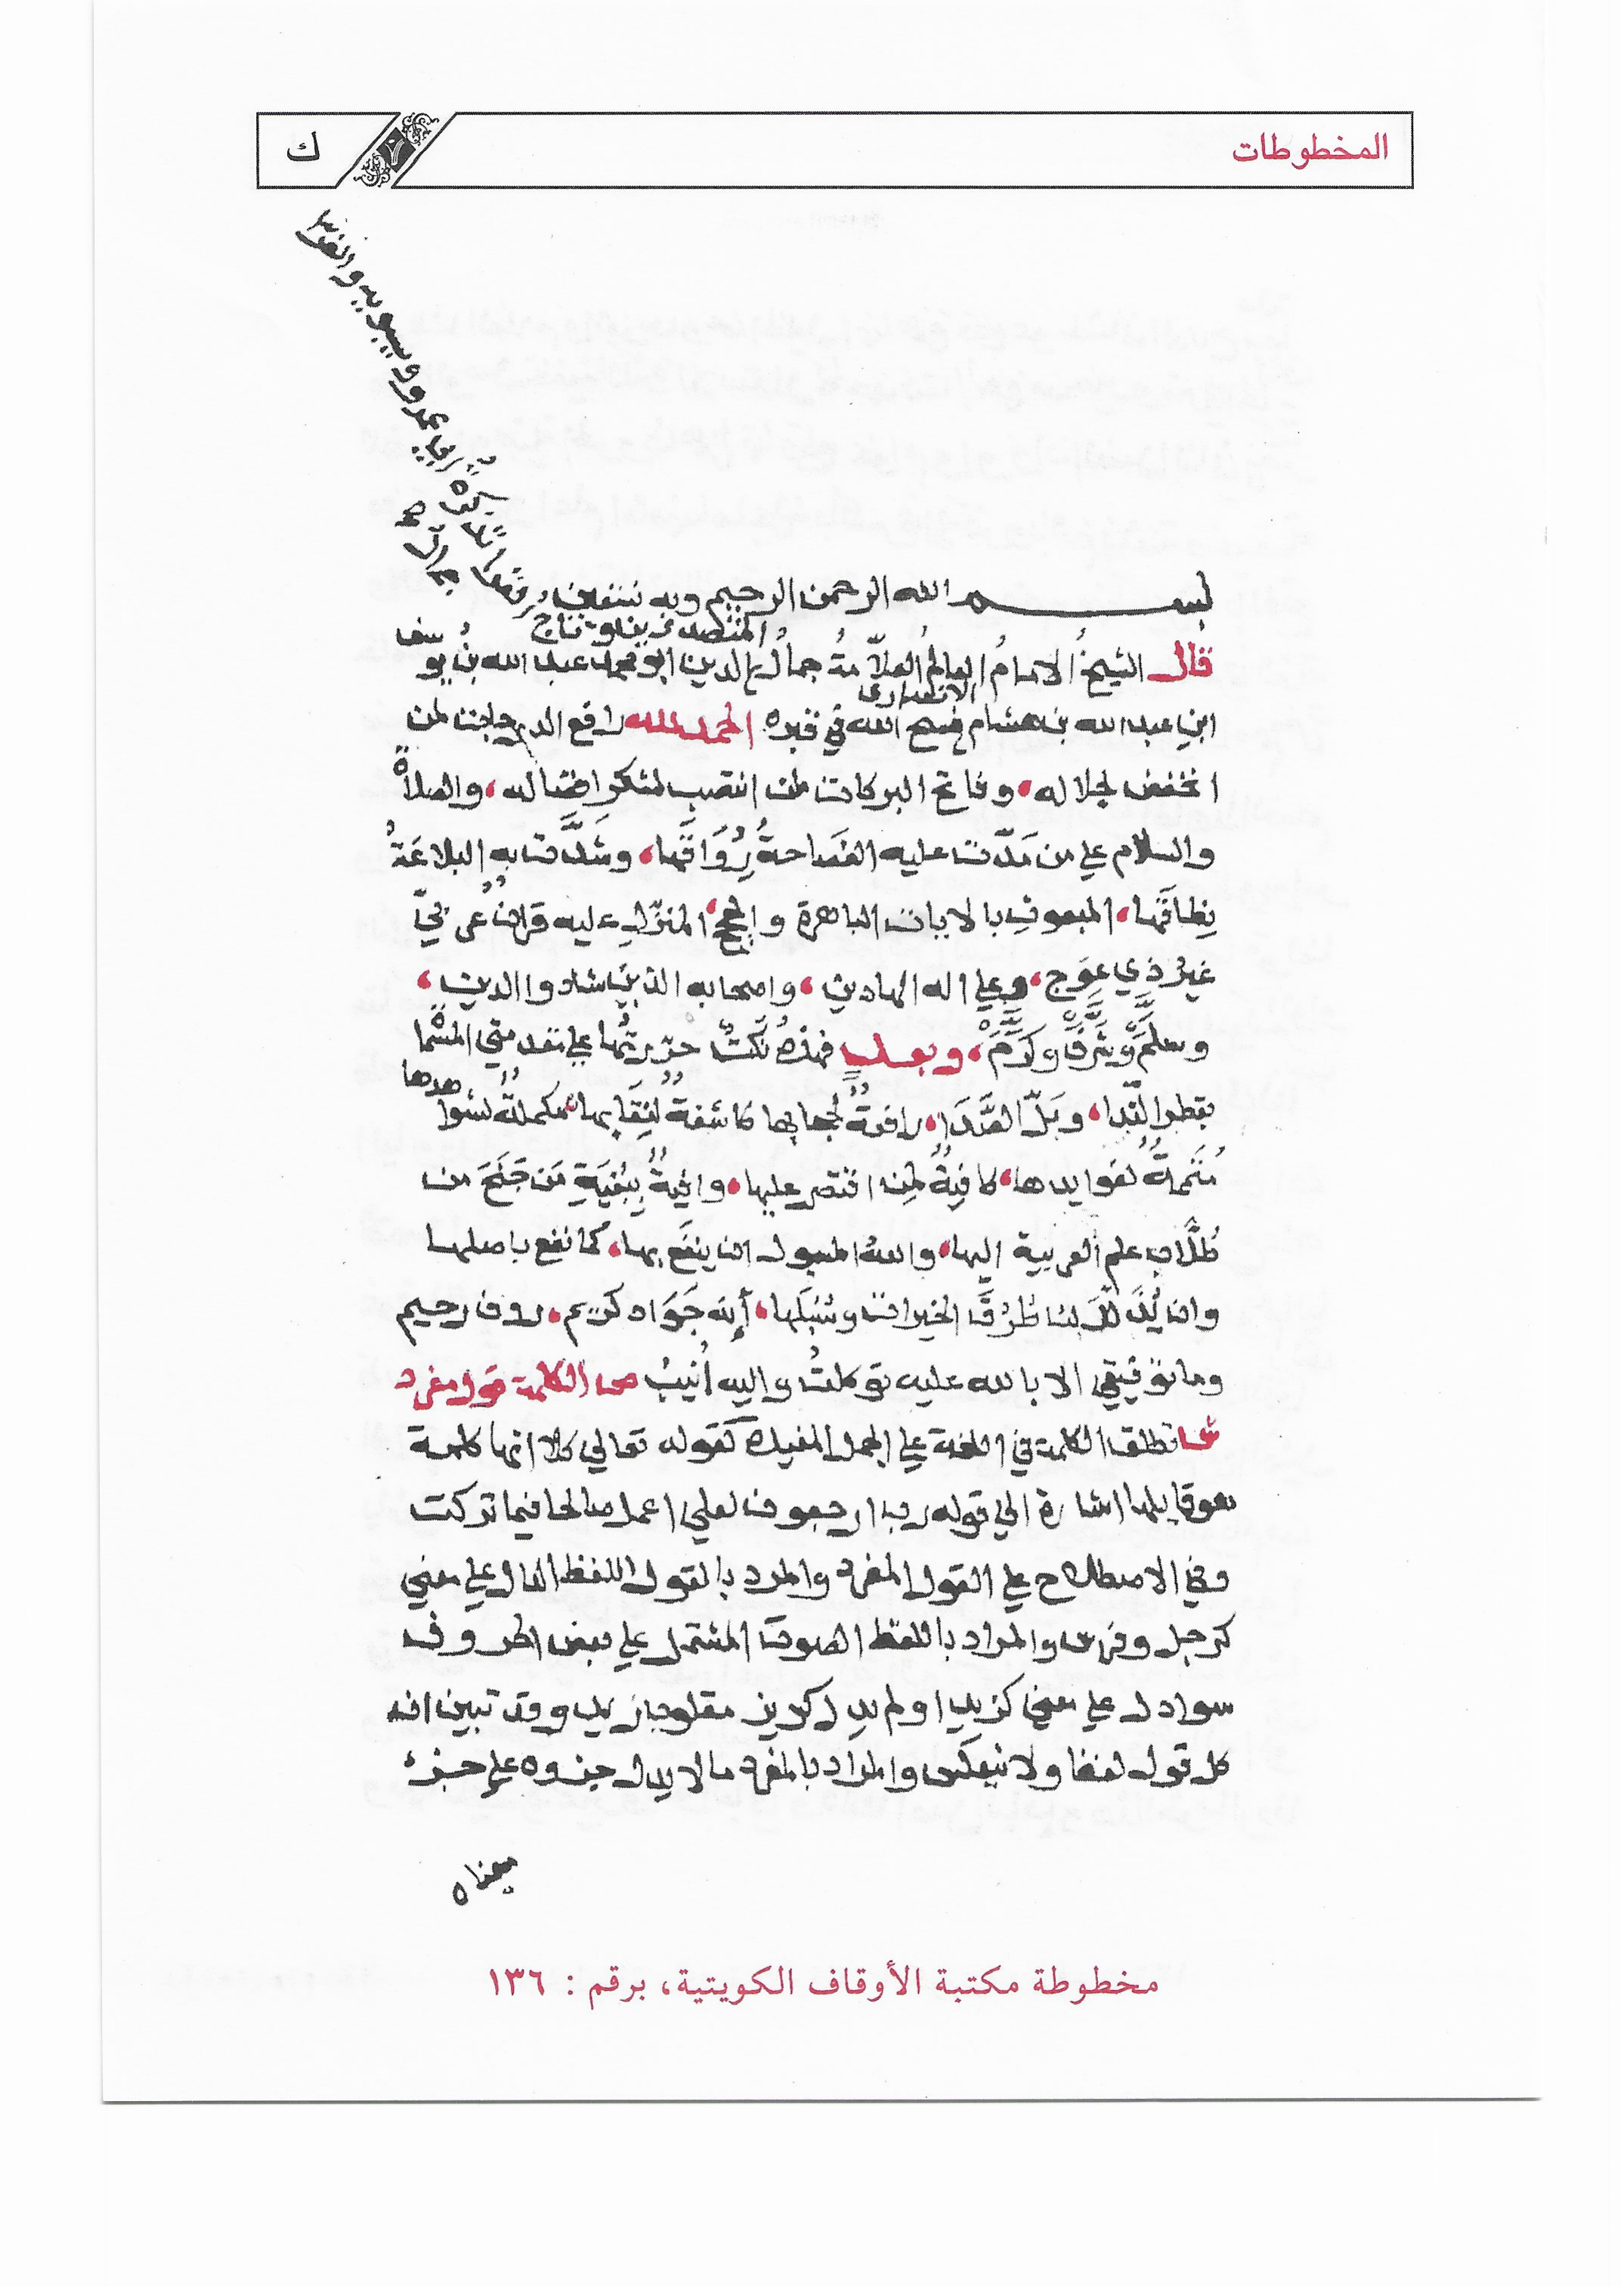 المخطوطات
ك
وسيبويه والفراء
بسم الله الرحمن الرحيم وبه نستعين
المتصدرين وتاج
قال الشيخُ الامامُ العالمُ العلاّمةُ جمالُ الدين ابو محمد عبد الله بنُ يوسف
الانصاري
ابنِ عبد الله بن هشام فسح الله في قبره الحمد لله رافع الدرجات لمن
انخفض لجلاله، وفاتح البركات لمن انتصب لشكر افضاله، والصلاةُ
والسلام علي من مَدّت عليه الفصاحةُ رُوَاقَها، وشَدَّت به البلاغةُ
نِطَاقَها، المبعوثِ بالايات الباهرة والحجج، المنزّلِ عليه قرانٌ عربيّ
غيرُ ذي عِوَج، وعلي اله الهادين، واصحابه الذين شادوا الدين،
وسلَّمَ وشَرَّفَ وكَرَّمَ، وبعد فهذه نُكَتٌ حرّرتُها علي مقدمتي المسما
هدها
بقطر النّدا، وبَلّ الصَّدَا، رافعةٌ لحجابها كاشفةٌ لنِقَابها، مكملةٌ لشوا
مُتَمِّمةٌ لفوايدها، كافِيةٌ لمن اقتصر عليها، وافيةٌ بِبُغْيَةِ مَن جَنَحَ من
طُلَّابِ علم العربية اليها، واللهُ المسول ان ينفع بها، كما نفع باصلها
وان يُذَلِّلَ لنا طُرُقَ الخيرات وسُبُلَها، إنه جَوَاد كريم، روف رحيم
وما توفيقي الا بالله عليه توكلتُ واليه أُنيبُ ص الكلمة قول مفرد
ش تطلق الكلمة في اللغة علي الجمل المفيدة كقوله تعالي كلا انها كلمة
هو قايلها اشارة الي قوله رب ارجعون لعلي اعمل صالحا فيما تركت
وفي الاصطلاح علي القول المفرد والمراد بالقول اللفظ الدال علي معني
كرجل وفرس والمراد باللفظ الصوت المشتمل علي بعض الحروف
سوا دل علي معني كزيد او لم يدل كديز مقلوب زيد وقد تبين ان
كل قول لفظ ولا ينعكس والمراد بالمفرد ما لا يدل جزوه علي جزء
معناه
مخطوطة مكتبة الأوقاف الكويتية، برقم : ١٣٦